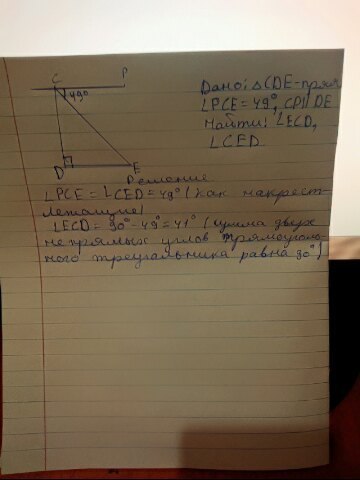 C P
49°
D E
Дано: △CDE-прям
∠PCE = 49°, CP || DE
Найти: ∠ECD,
∠CED.
Решение
∠PCE = ∠CED = 49° (как накрест-
лежащие)
∠ECD = 90° - 49° = 41° (сумма двух
не прямых углов прямоуголь-
ного треугальника равна 90°)